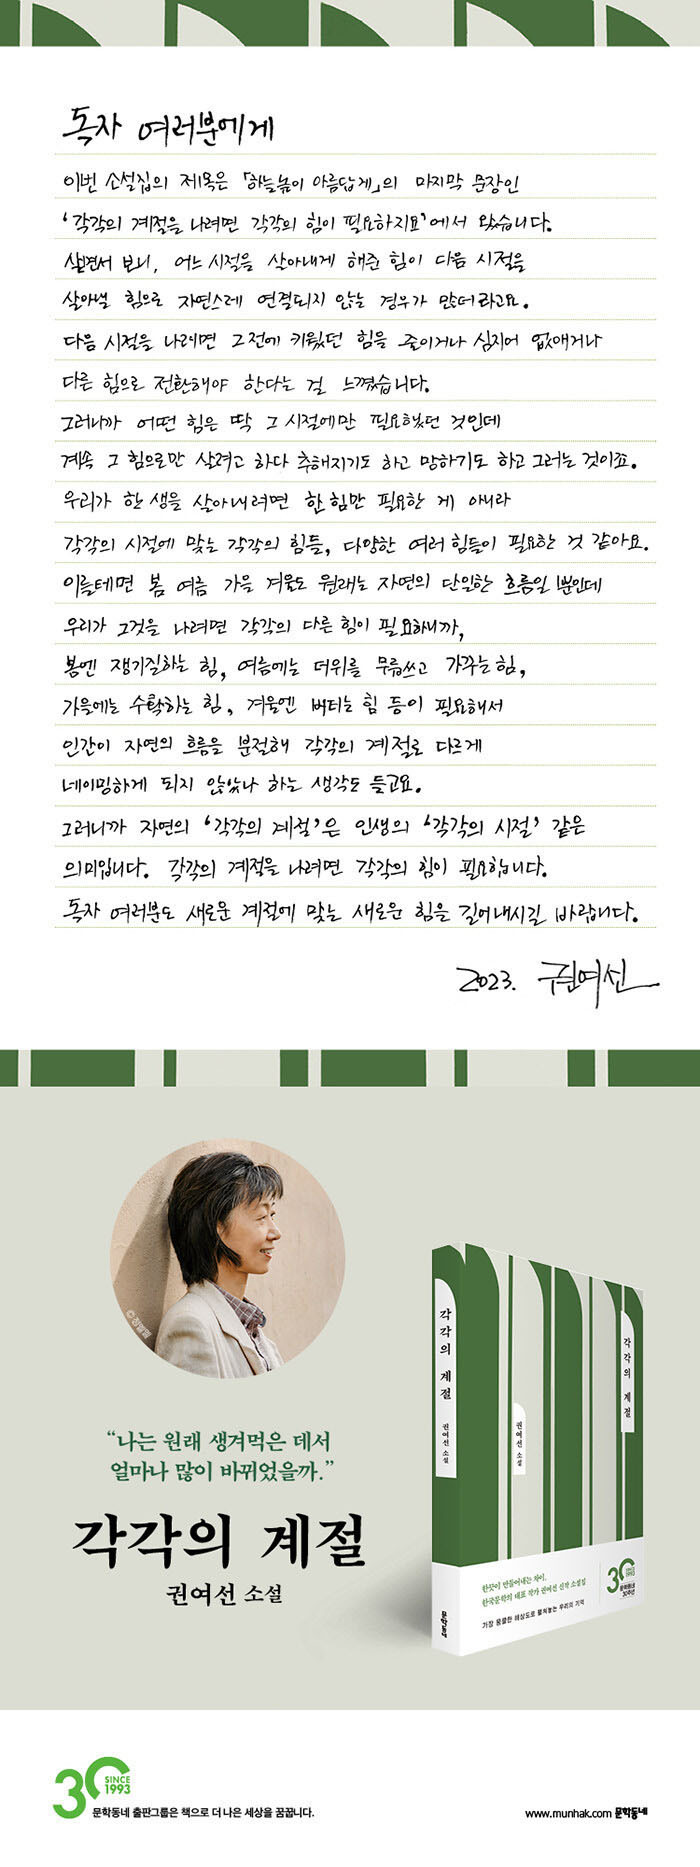 독자 여러분에게
이번 소설집의 제목은 「하늘높이 아름답게」의 마지막 문장인
‘각각의 계절을 나려면 각각의 힘이 필요하지요’에서 왔습니다.
살면서 보니, 어느 시절을 살아내게 해준 힘이 다음 시절을
살아낼 힘으로 자연스레 연결되지 않는 경우가 많더라고요.
다음 시절을 나려면 그전에 키웠던 힘을 줄이거나 심지어 없애거나
다른 힘으로 전환해야 한다는 걸 느꼈습니다.
그러니까 어떤 힘은 딱 그 시절에만 필요했던 것인데
계속 그 힘으로만 살려고 하다 추해지기도 하고 망하기도 하고 그러는 것이죠.
우리가 한 생을 살아내려면 한 힘만 필요한 게 아니라
각각의 시절에 맞는 각각의 힘들, 다양한 여러 힘들이 필요한 것 같아요.
이를테면 봄 여름 가을 겨울도 원래는 자연의 단일한 흐름일 뿐인데
우리가 그것을 나려면 각각의 다른 힘이 필요하니까,
봄엔 쟁기질하는 힘, 여름에는 더위를 무릅쓰고 가꾸는 힘,
가을에는 수확하는 힘, 겨울엔 버티는 힘 등이 필요해서
인간이 자연의 흐름을 분절해 각각의 계절로 다르게
네이밍하게 되지 않았나 하는 생각도 들고요.
그러니까 자연의 ‘각각의 계절’은 인생의 ‘각각의 시절’ 같은
의미입니다. 각각의 계절을 나려면 각각의 힘이 필요합니다.
독자 여러분도 새로운 계절에 맞는 새로운 힘을 길어내시길 바랍니다.
2023. 권여선
“나는 원래 생겨먹은 데서
얼마나 많이 바뀌었을까.”
각각의 계절
권여선 소설
각각의 계절
권여선 소설
문학동네
각각의 계절
권여선 소설
한끗이 만들어내는 차이,
한국문학의 대표 작가 권여선 신작 소설집
가장 뭉클한 해상도로 펼쳐놓는 우리의 기억
30 SINCE 1993
문학동네
30주년
30 SINCE 1993
문학동네 출판그룹은 책으로 더 나은 세상을 꿈꿉니다.
www.munhak.com 문학동네